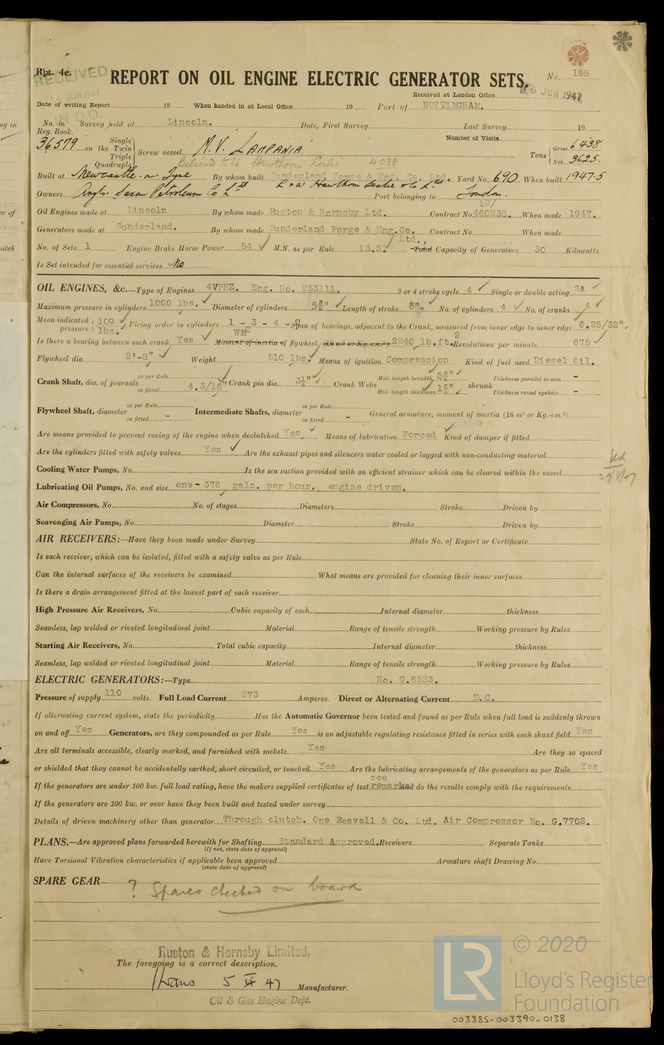 Rpt. 4c.
RECEIVED
IN D.O.
REPORT ON OIL ENGINE ELECTRIC GENERATOR SETS.
No. 198
Received at London Office
6 JUN 1947
Date of writing Report 19 When handed in at Local Office 19 Port of NOTTINGHAM.
No. in Survey held at Lincoln. Date, First Survey Last Survey 19
Reg. Book. Number of Visits
36579 on the Single Twin Triple Quadruple Screw vessel M.V. LAMPANIA Tons Gross 6438 Net 3625
Built at Newcastle-on-Tyne By whom built Sunderland Forge & Eng. Co. Ltd. R & W Hawthorn Leslie & Co Ltd. Yard No. 690 When built 1947-5
Owners Anglo Saxon Petroleum Co Ltd Port belonging to London.
Oil Engines made at Lincoln By whom made Ruston & Hornsby Ltd. Contract No. 460238. When made 1947.
Generators made at Sunderland. By whom made Sunderland Forge & Eng.Co. Ltd., Contract No. When made
No. of Sets 1 Engine Brake Horse Power 54 M.N. as per Rule 13.5 Total Capacity of Generators 30 Kilowatts
Is Set intended for essential services No
OIL ENGINES, &c.—Type of Engines 4VPHZ. Eng. No. 253111. 2 or 4 stroke cycle 4 Single or double acting SA
Maximum pressure in cylinders 1000 lbs. Diameter of cylinders Length of stroke 8" No. of cylinders 4 No. of cranks 4
Mean indicated pressure 109 lbs. Firing order in cylinders 1 - 3 - 4 - 2 Span of bearings, adjacent to the Crank, measured from inner edge to inner edge 6.25/32"
Is there a bearing between each crank Yes WR2 Moment of inertia of flywheel 2240 lb.ft.2 Revolutions per minute 675
Flywheel dia. 2'-8" Weight 510 lbs. Means of ignition Compression Kind of fuel used Diesel Oil.
Crank Shaft, dia. of journals as per Rule as fitted 4.3/16" Crank pin dia. 3½" Crank Webs Mid. length breadth Mid. length thickness shrunk Thickness parallel to axis - Thickness round eyehole -
Flywheel Shaft, diameter as per Rule as fitted - Intermediate Shafts, diameter as per Rule as fitted - General armature, moment of inertia (16 m² or Kg.-cm.²)
Are means provided to prevent racing of the engine when declutched Yes Means of lubrication Forced Kind of damper if fitted
Are the cylinders fitted with safety valves Yes Are the exhaust pipes and silencers water cooled or lagged with non-conducting material
Cooling Water Pumps, No. Is the sea suction provided with an efficient strainer which can be cleared within the vessel
Lubricating Oil Pumps, No. and size one - 376 gals. per hour. engine driven.
Air Compressors, No. No. of stages Diameters Stroke Driven by
Scavenging Air Pumps, No. Diameter Stroke Driven by
AIR RECEIVERS:—Have they been made under Survey State No. of Report or Certificate
Is each receiver, which can be isolated, fitted with a safety valve as per Rule
Can the internal surfaces of the receivers be examined What means are provided for cleaning their inner surfaces
Is there a drain arrangement fitted at the lowest part of each receiver
High Pressure Air Receivers, No. Cubic capacity of each Internal diameter thickness
Seamless, lap welded or riveted longitudinal joint Material Range of tensile strength Working pressure by Rules
Starting Air Receivers, No. Total cubic capacity Internal diameter thickness
Seamless, lap welded or riveted longitudinal joint Material Range of tensile strength Working pressure by Rules
ELECTRIC GENERATORS:—Type No. G.6523.
Pressure of supply 110 volts. Full Load Current 273 Amperes. Direct or Alternating Current D.C.
If alternating current system, state the periodicity Has the Automatic Governor been tested and found as per Rule when full load is suddenly thrown
on and off Yes Generators, are they compounded as per Rule Yes is an adjustable regulating resistance fitted in series with each shunt field Yes
Are all terminals accessible, clearly marked, and furnished with sockets Yes Are they so spaced
or shielded that they cannot be accidentally earthed, short circuited, or touched Yes Are the lubricating arrangements of the generators as per Rule Yes
If the generators are under 100 kw. full load rating, have the makers supplied certificates of test see remarks and do the results comply with the requirements
If the generators are 100 kw. or over have they been built and tested under survey
Details of driven machinery other than generator Through clutch. One Reavell & Co. Ltd. Air Compressor No. G.7702.
PLANS.—Are approved plans forwarded herewith for Shafting Standard Approved. Receivers Separate Tanks
(If not, state date of approval)
Have Torsional Vibration characteristics if applicable been approved Armature shaft Drawing No.
(state date of approval)
SPARE GEAR ? Spares checked on board
Ruston & Hornsby Limited,
The foregoing is a correct description,
5 VI 47 Manufacturer.
Oil & Gas Engine Dept.
LR © 2020
Lloyd's Register
Foundation
003385-003390-0138